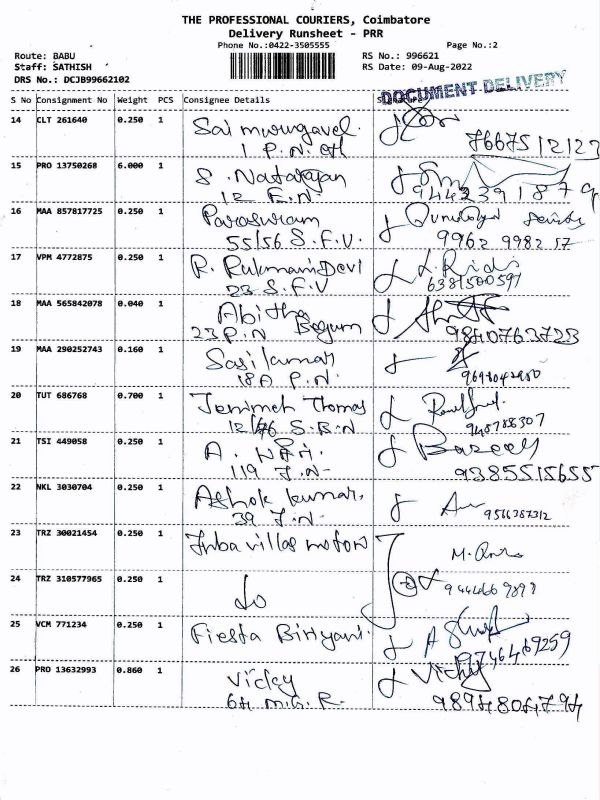 THE PROFESSIONAL COURIERS, Coimbatore
Delivery Runsheet - PRR
Phone No.:0422-3505555
Page No.:2
Route: BABU
RS No.: 996621
Staff: SATHISH
RS Date: 09-Aug-2022
DRS No.: DCJB99662102
DOCUMENT DELIVERY
S No Consignment No Weight PCS Consignee Details
14 CLT 261640 0.250 1 Sai murugavel
1 P.N.
76675 12123
15 PRO 13750268 6.000 1 S. Natarajan
12 F.N.
944239 1879
16 MAA 857817725 0.250 1 Parasuram
55/56 S.F.U.
9962 9982 57
17 VPM 4772875 0.250 1 R. RukmaniDevi
23 S.F.V
6381500597
18 MAA 565842078 0.040 1 Abitha
23 P.N Begum
9840763723
19 MAA 290252743 0.160 1 Sasikumar
18A P.N.
20 TUT 686768 0.700 1 Jemimeh Thomas
12/46 S.B.N
21 TSI 449058 0.250 1 A.
119 J.N-
9385515655
22 NKL 3030704 0.250 1 Ashok kumar.
39 J.N.
9566387312
23 TRZ 30021454 0.250 1 Inba villas motors
24 TRZ 310577965 0.250 1 do
25 VCM 771234 0.250 1 Fiesta Biriyani.
26 PRO 13632993 0.860 1 Vicky
64 M.G.R.
Vicky
9894804794